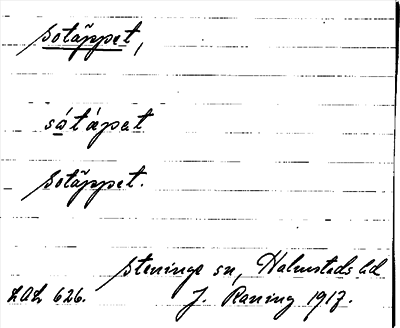 Sotäppet,
so̱tápat
Sotäppet.
Steninge sn, Halmstads hd
LAL 626. J. Raning 1917.